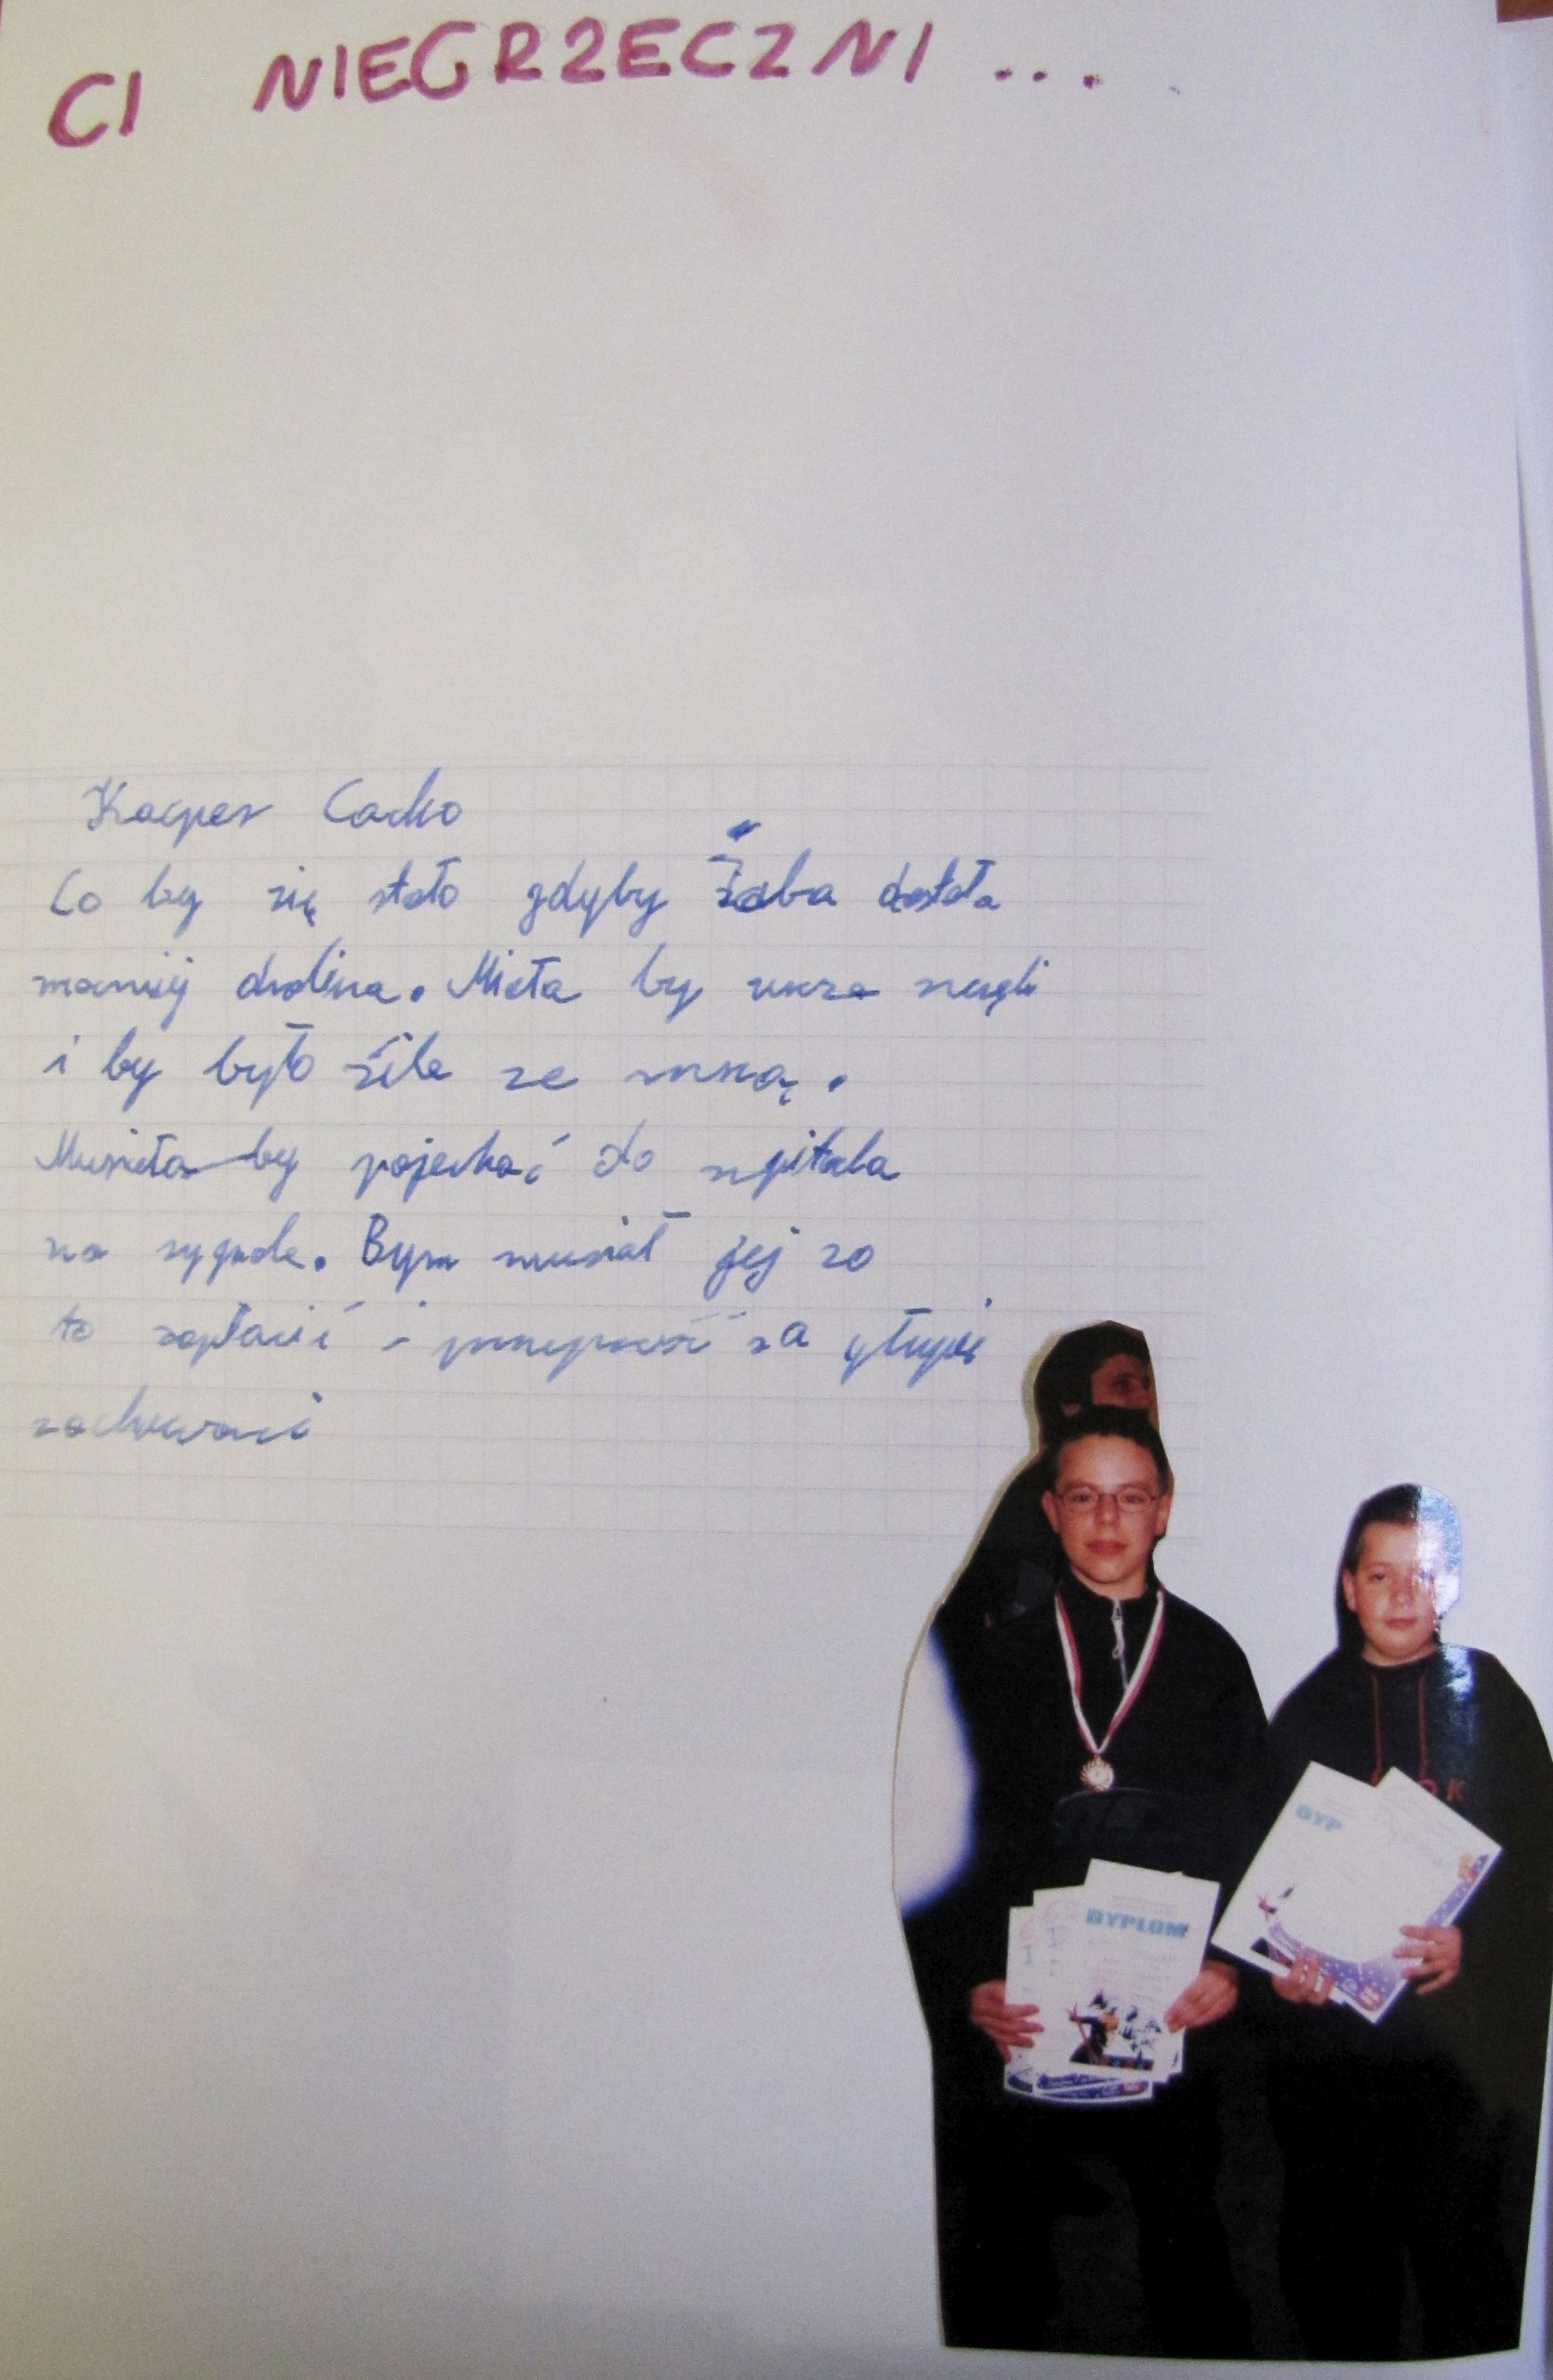 CI NIEGRZECZNI ...
Kacper
Co by się stało gdyby Żaba dostała
Miała by
i by było źile ze mną.
Musiała by pojechać do szpitala
na sygnale. Bym musiał jej za
to zapłacić i za głupie
DYP
DYPLOM
OK